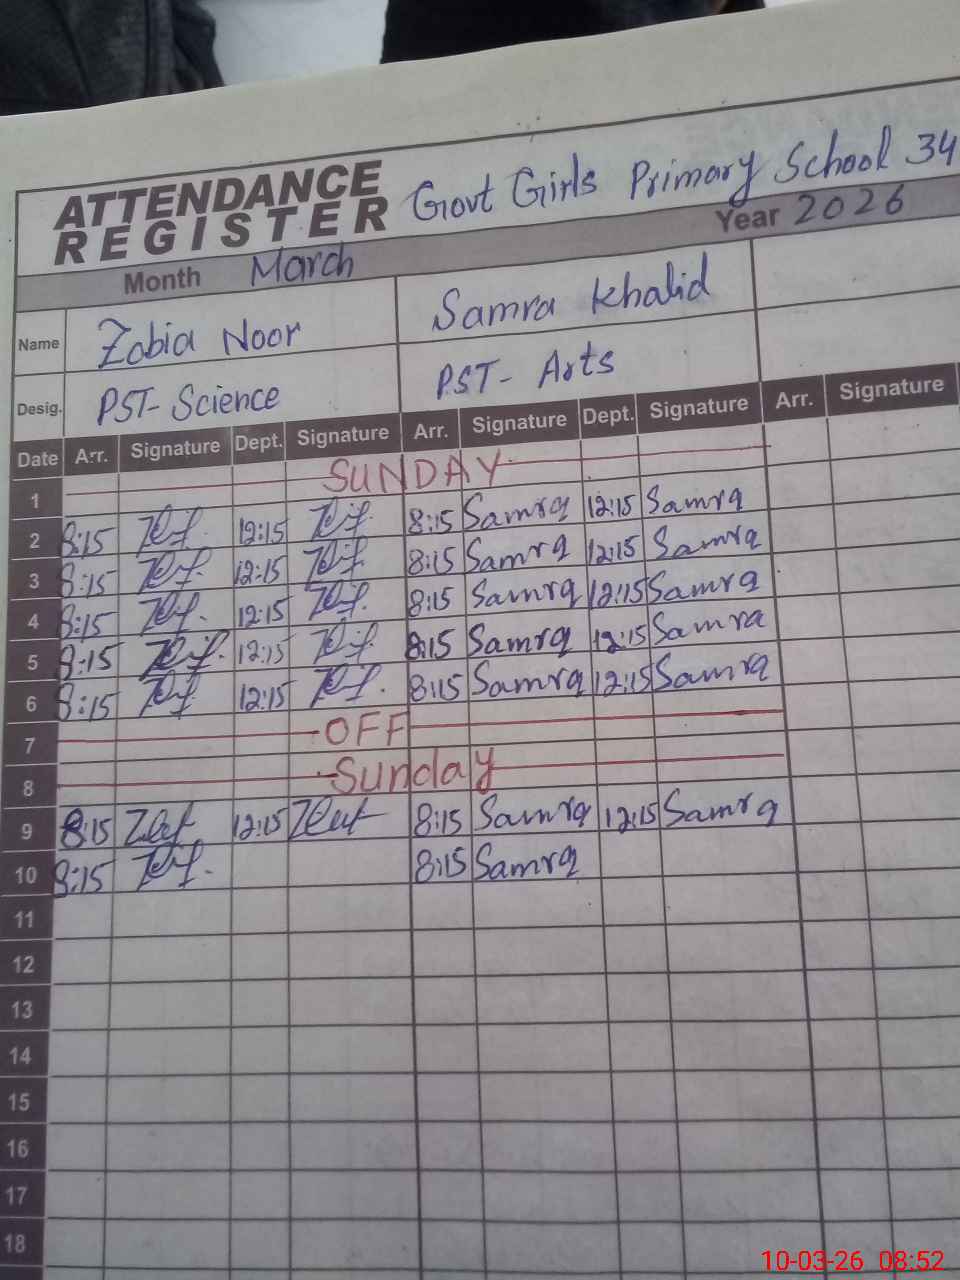 ATTENDANCE REGISTER Govt Girls Primary School 34
Month March Year 2026
Name Zobia Noor Samra Khalid
Desig. PST- Science PST- Arts
Date Arr. Signature Dept. Signature Arr. Signature Dept. Signature Arr. Signature
1 SUNDAY
2 8:15 12:15 8:15 Samra 12:15 Samra
3 8:15 12:15 8:15 Samra 12:15 Samra
4 8:15 12:15 8:15 Samra 12:15 Samra
5 8:15 12:15 8:15 Samra 12:15 Samra
6 8:15 12:15 8:15 Samra 12:15 Samra
7 OFF
8 Sunday
9 8:15 12:15 8:15 Samra 12:15 Samra
10 8:15 8:15 Samra
11
12
13
14
15
16
17
18
10-03-26 08:52